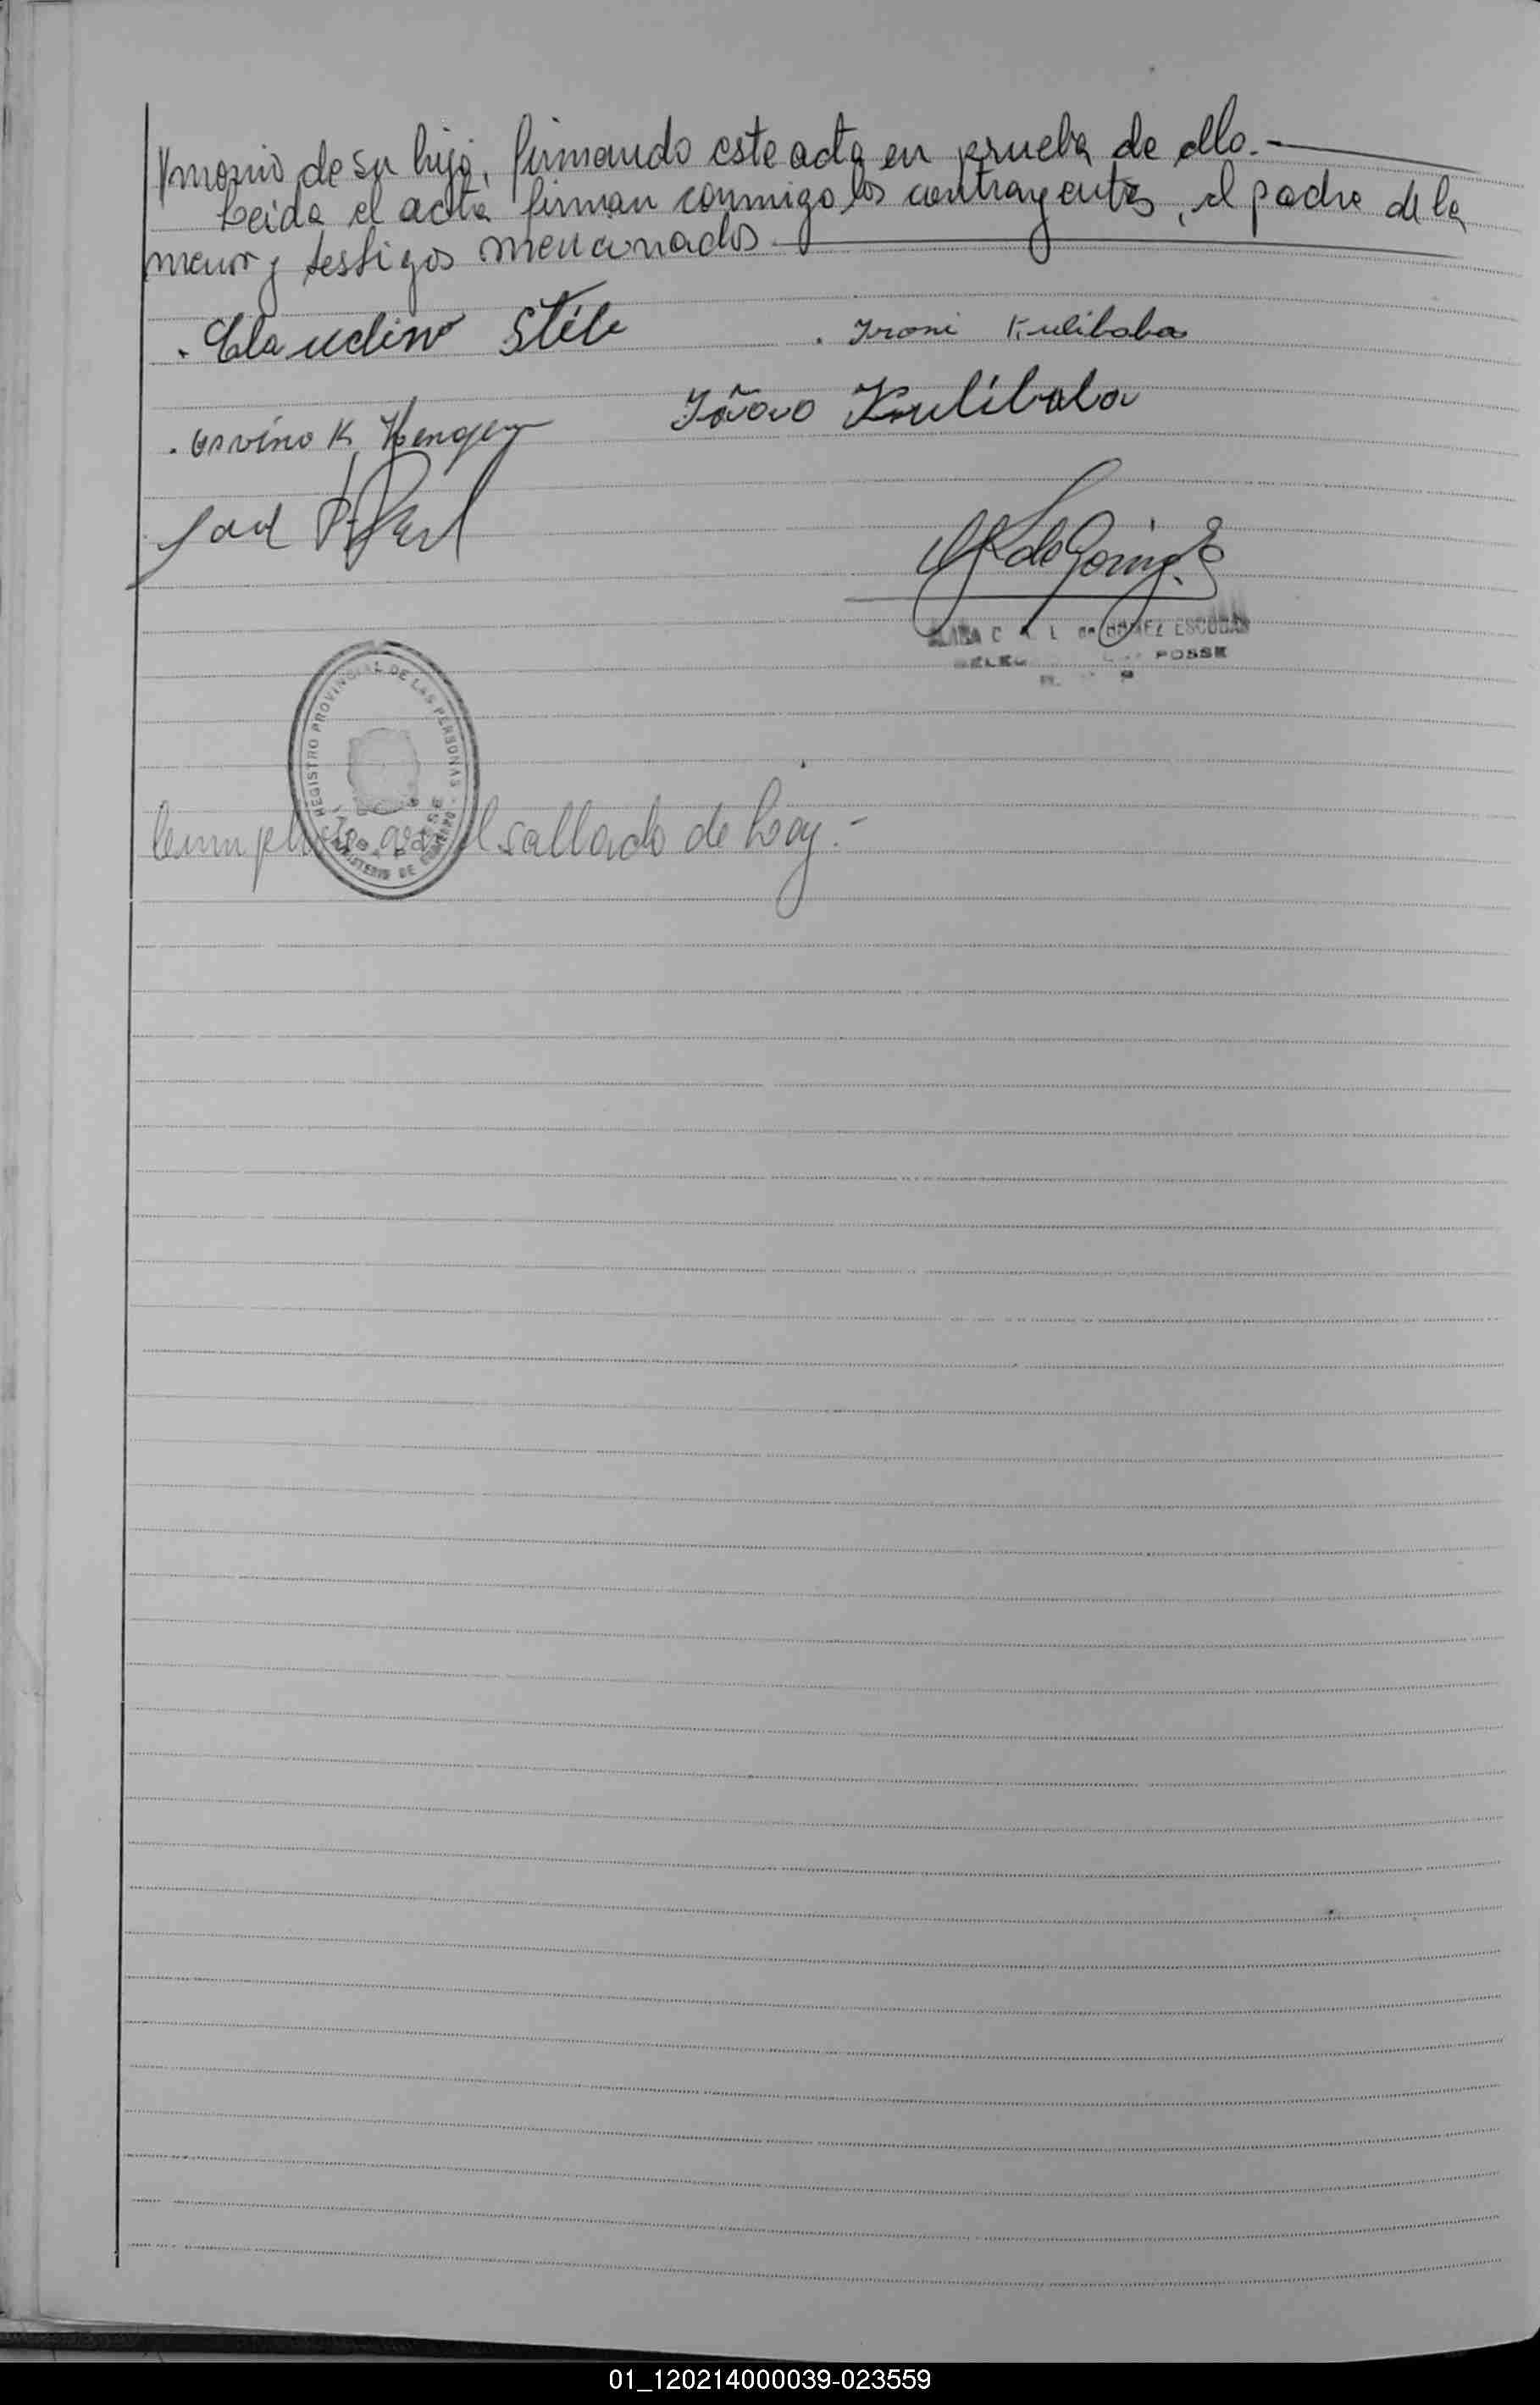 trimonio de su hija, firmando este acta en prueba de ello.-
Leida el acta firman conmigo los contrayentes, el padre de la
menor y testigos mencionados.
. Claudino Stib
. Irani Kulibaba
. Arvino K
João Kulibaba
GOMEZ ESCOBAR
POSSE
REGISTRO PROVINCIAL DE LAS PERSONAS
MINISTERIO DE GOBIERNO
POSSE
el sallado de hoy.-
01_120214000039-023559